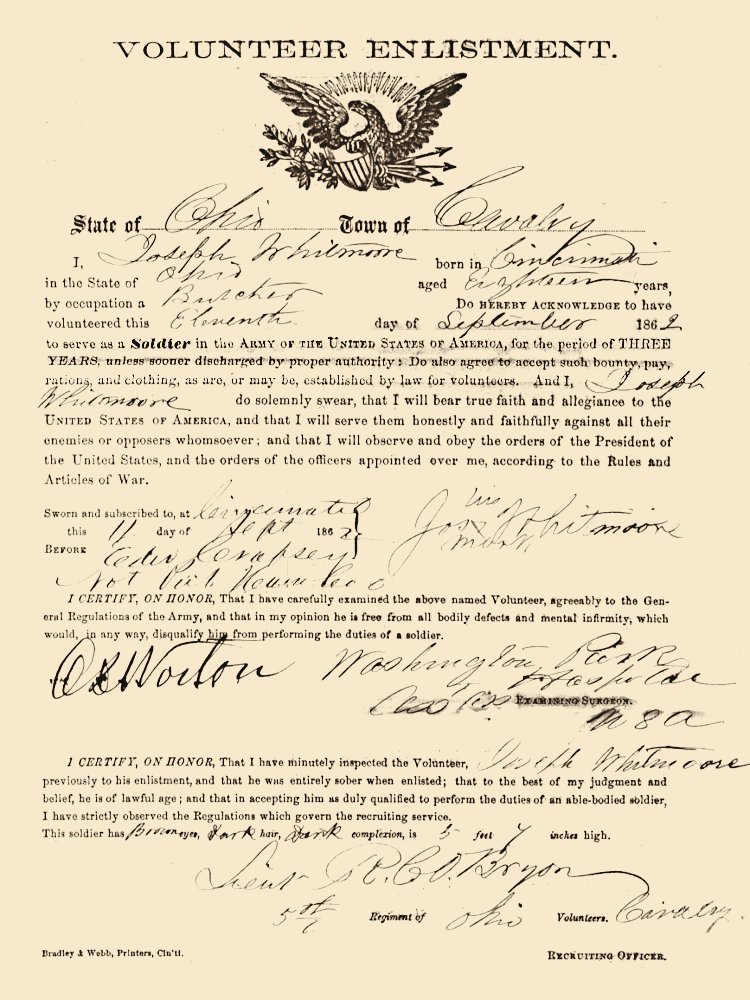 VOLUNTEER ENLISTMENT.
State of Ohio Town of Cavalry
I, Joseph Whitmoore born in Cincinnati
in the State of Ohio aged Eighteen years,
by occupation a Butcher Do HEREBY ACKNOWLEDGE to have
volunteered this Eleventh day of September 1862
to serve as a Soldier in the ARMY OF THE UNITED STATES OF AMERICA, for the period of THREE
YEARS, unless sooner discharged by proper authority: Do also agree to accept such bounty, pay,
rations, and clothing, as are, or may be, established by law for volunteers. And I, Joseph
Whitmoore do solemnly swear, that I will bear true faith and allegiance to the
UNITED STATES OF AMERICA, and that I will serve them honestly and faithfully against all their
enemies or opposers whomsoever; and that I will observe and obey the orders of the President of
the United States, and the orders of the officers appointed over me, according to the Rules and
Articles of War.
Sworn and subscribed to, at Cincinnati
this 11 day of Sept 1862
his
Jos X Whitmoore
mark
BEFORE Edw Crapsey
Not Pub
I CERTIFY, ON HONOR, That I have carefully examined the above named Volunteer, agreeably to the Gen-
eral Regulations of the Army, and that in my opinion he is free from all bodily defects and mental infirmity, which
would, in any way, disqualify him from performing the duties of a soldier.
Norton Washington Park
Hospital
EXAMINING SURGEON.
USA
I CERTIFY, ON HONOR, That I have minutely inspected the Volunteer, Joseph Whitmoore
previously to his enlistment, and that he was entirely sober when enlisted; that to the best of my judgment and
belief, he is of lawful age; and that in accepting him as duly qualified to perform the duties of an able-bodied soldier,
I have strictly observed the Regulations which govern the recruiting service.
This soldier has Brown eyes, Dark hair, Dark complexion, is 5 feet 7 inches high.
Lieut R. C. O. Bryon
5th Regiment of Ohio Volunteers. Cavalry
Bradley & Webb, Printers, Cin'ti. RECRUITING OFFICER.